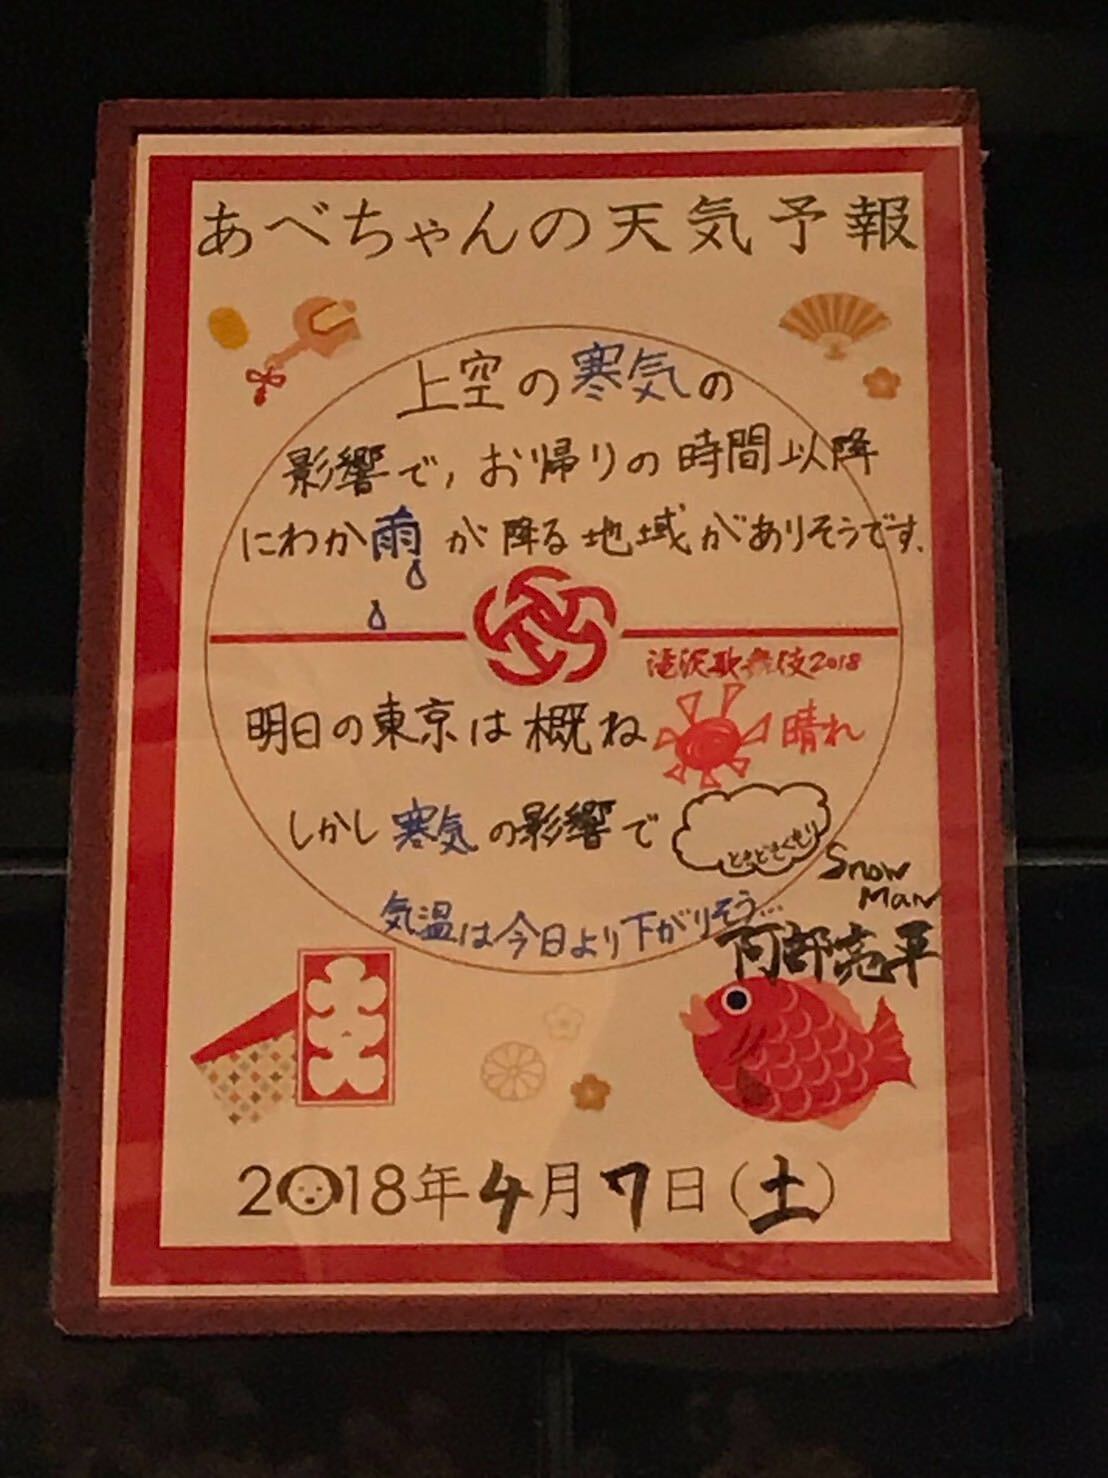 あべちゃんの天気予報
上空の寒気の
影響で、お帰りの時間以降
にわか雨が降る地域がありそうです。
滝沢歌舞伎2018
明日の東京は概ね 晴れ
しかし寒気の影響で ときどきくもり
Snow
Man
気温は今日より下がりそう…
阿部亮平
大入
2018年4月7日(土)